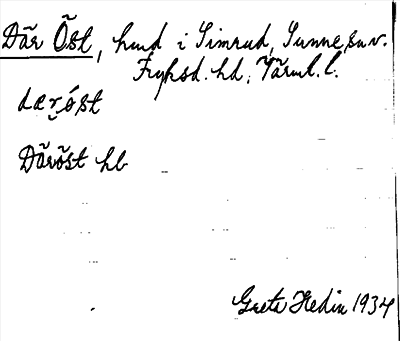 Där Öst, hmd i Simrud, Sunne sn v.
Fryksd. hd, Värml. l.
dær̭óst
Däröst hb
Greta Hedin 1934